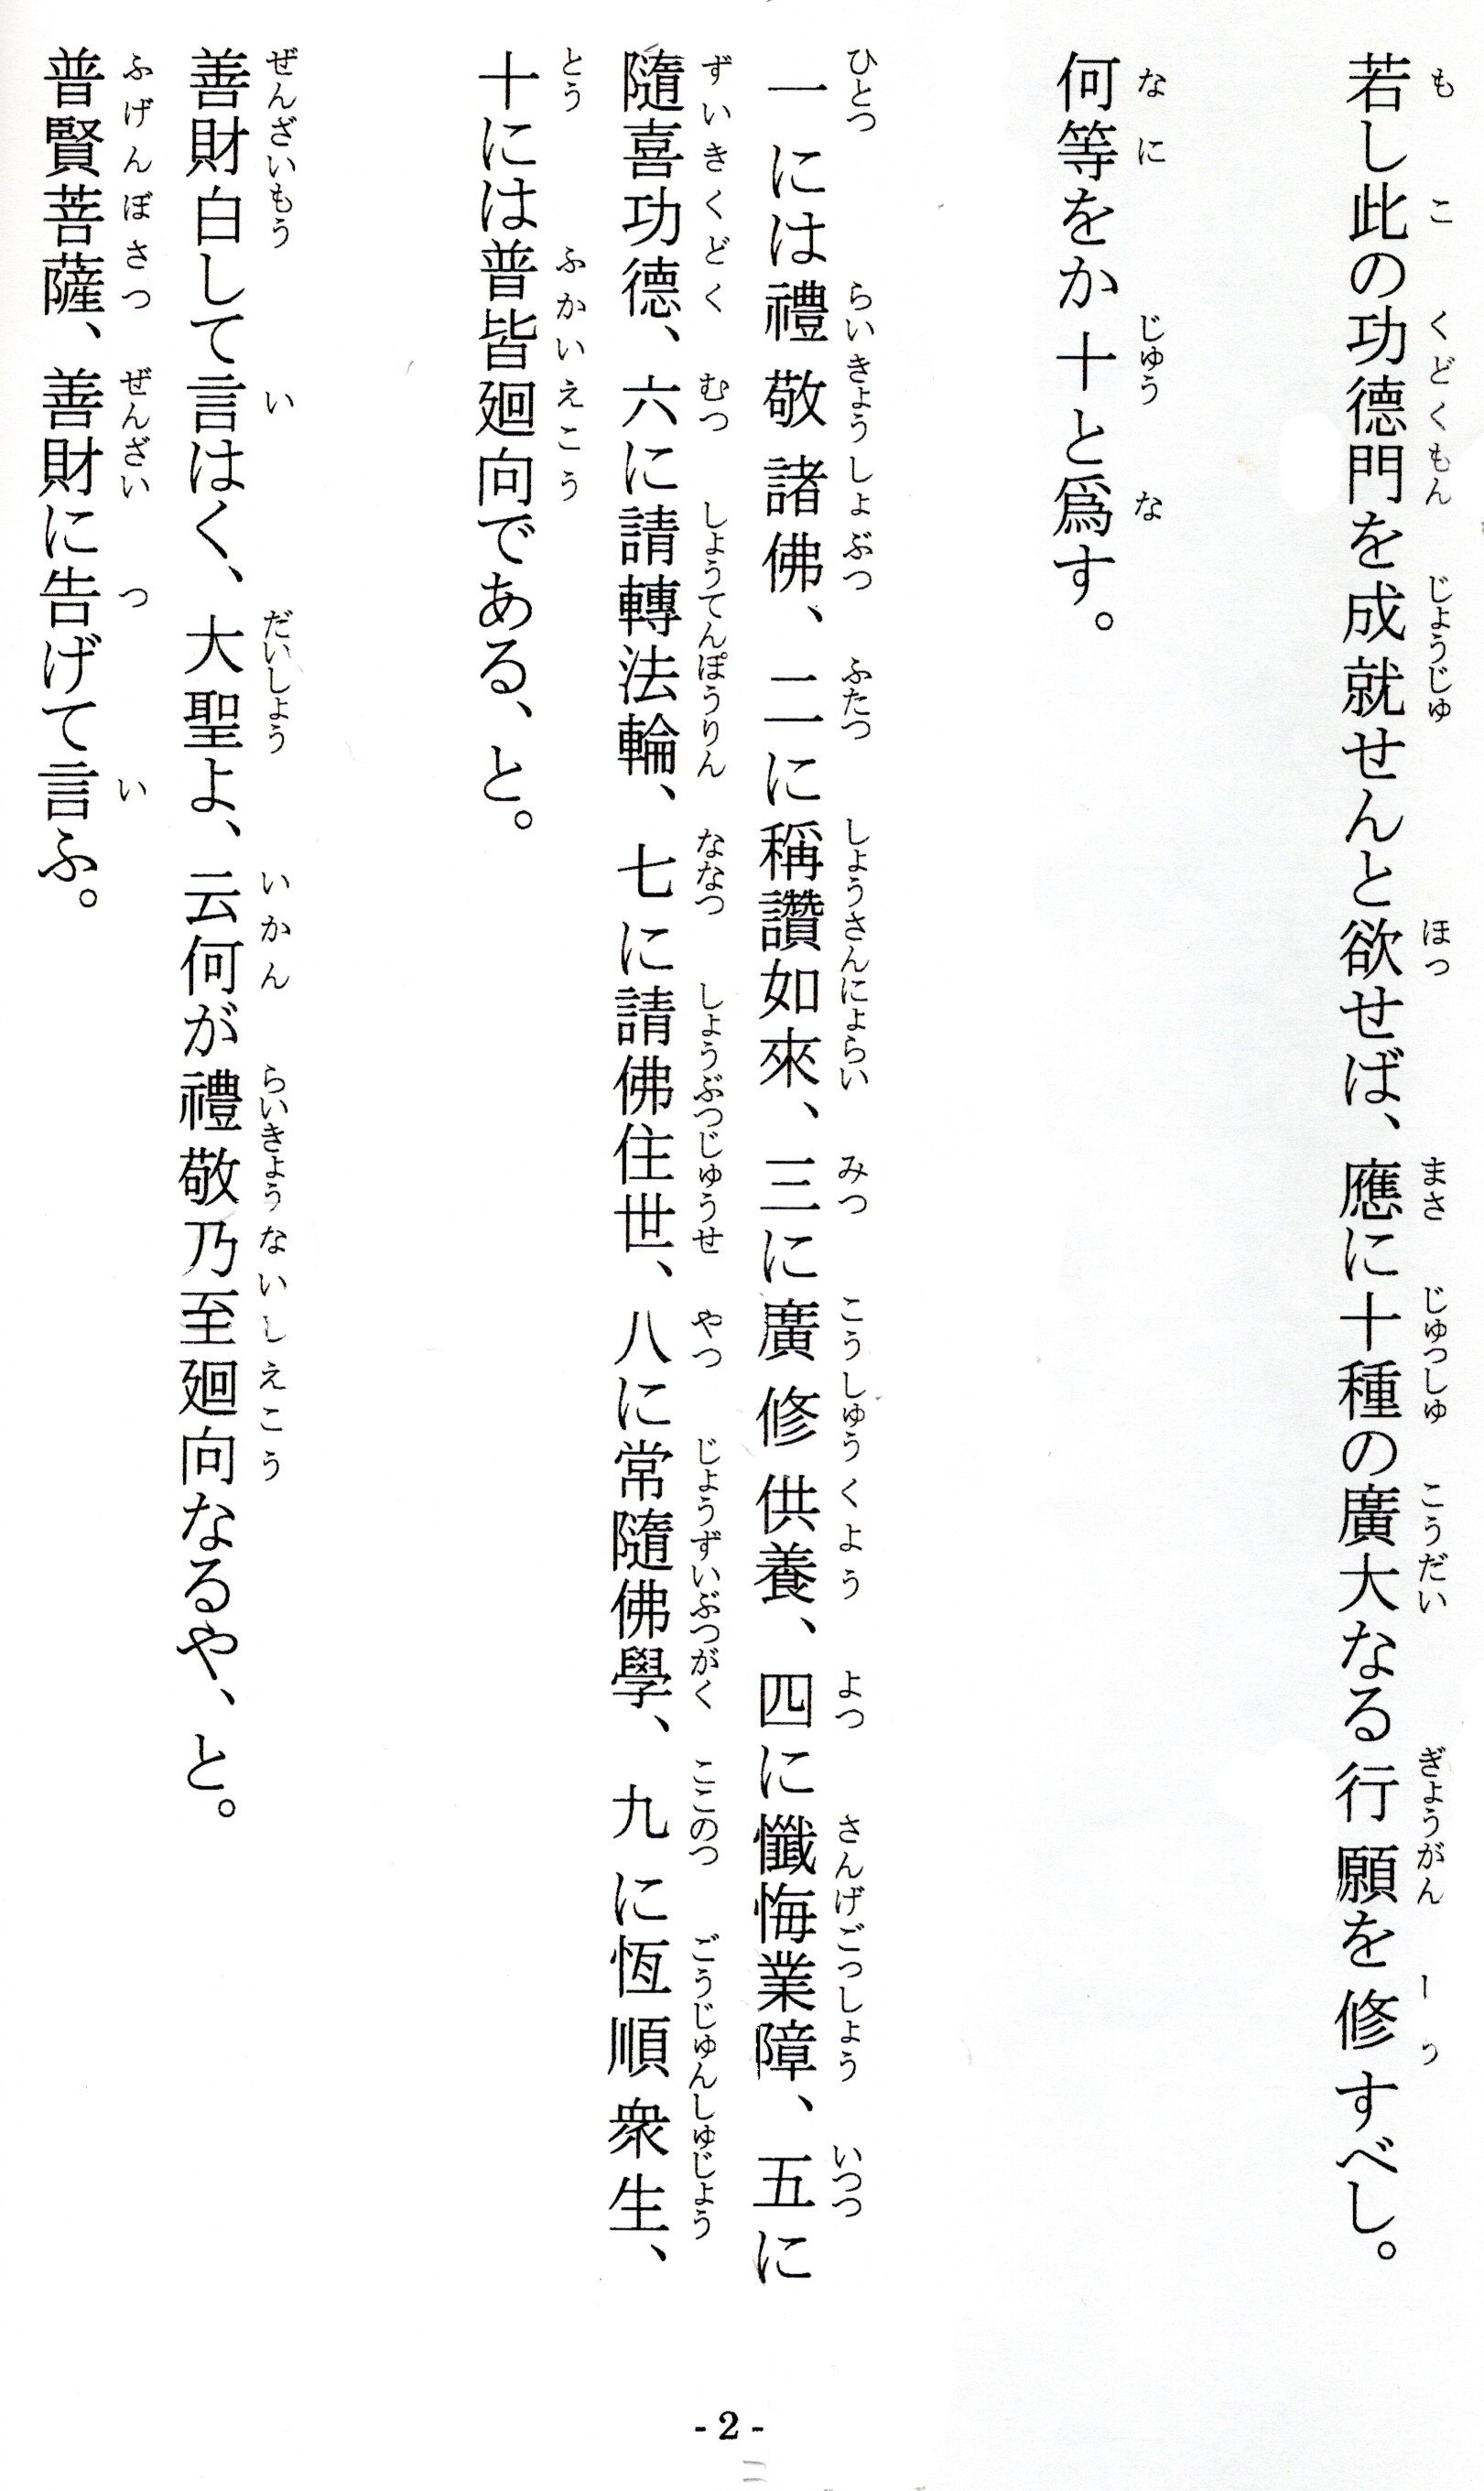 若し此の功德門を成就せんと欲せば、應に十種の廣大なる行願を修すべし。
何等をか十と爲す。
一には禮敬諸佛、二に稱讚如來、三に廣修供養、四に懺悔業障、五に
隨喜功德、六に請轉法輪、七に請佛住世、八に常隨佛學、九に恆順衆生、
十には普皆廻向である、と。
善財白して言はく、大聖よ、云何が禮敬乃至廻向なるや、と。
普賢菩薩、善財に告げて言ふ。
- 2 -